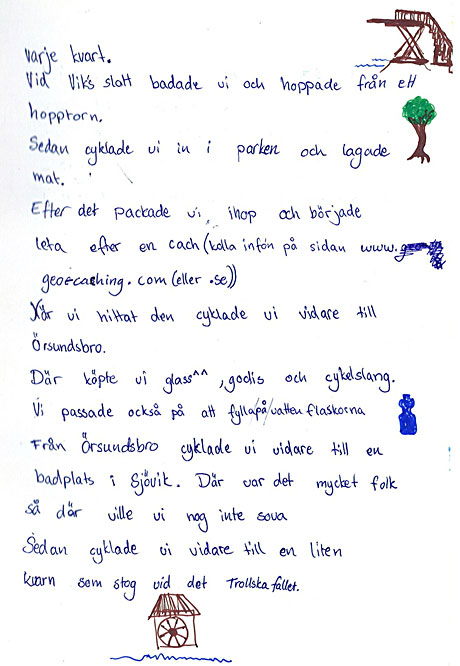 varje kvart.
Vid Viks slott badade vi och hoppade från ett
hopptorn.
Sedan cyklade vi in i parken och lagade
mat.
Efter det packade vi ihop och började
leta efter en cach (kolla infon på sidan www.geo
geocaching.com (eller .se))
När vi hittat den cyklade vi vidare till
Örsundsbro.
Där köpte vi glass^^, godis och cykelslang.
Vi passade också på att fylla/på/vatten flaskorna
Från Örsundsbro cyklade vi vidare till en
badplats i Sjövik. Där var det mycket folk
så där ville vi nog inte sova
Sedan cyklade vi vidare till en liten
kvarn som stog vid det Trollska fallet.